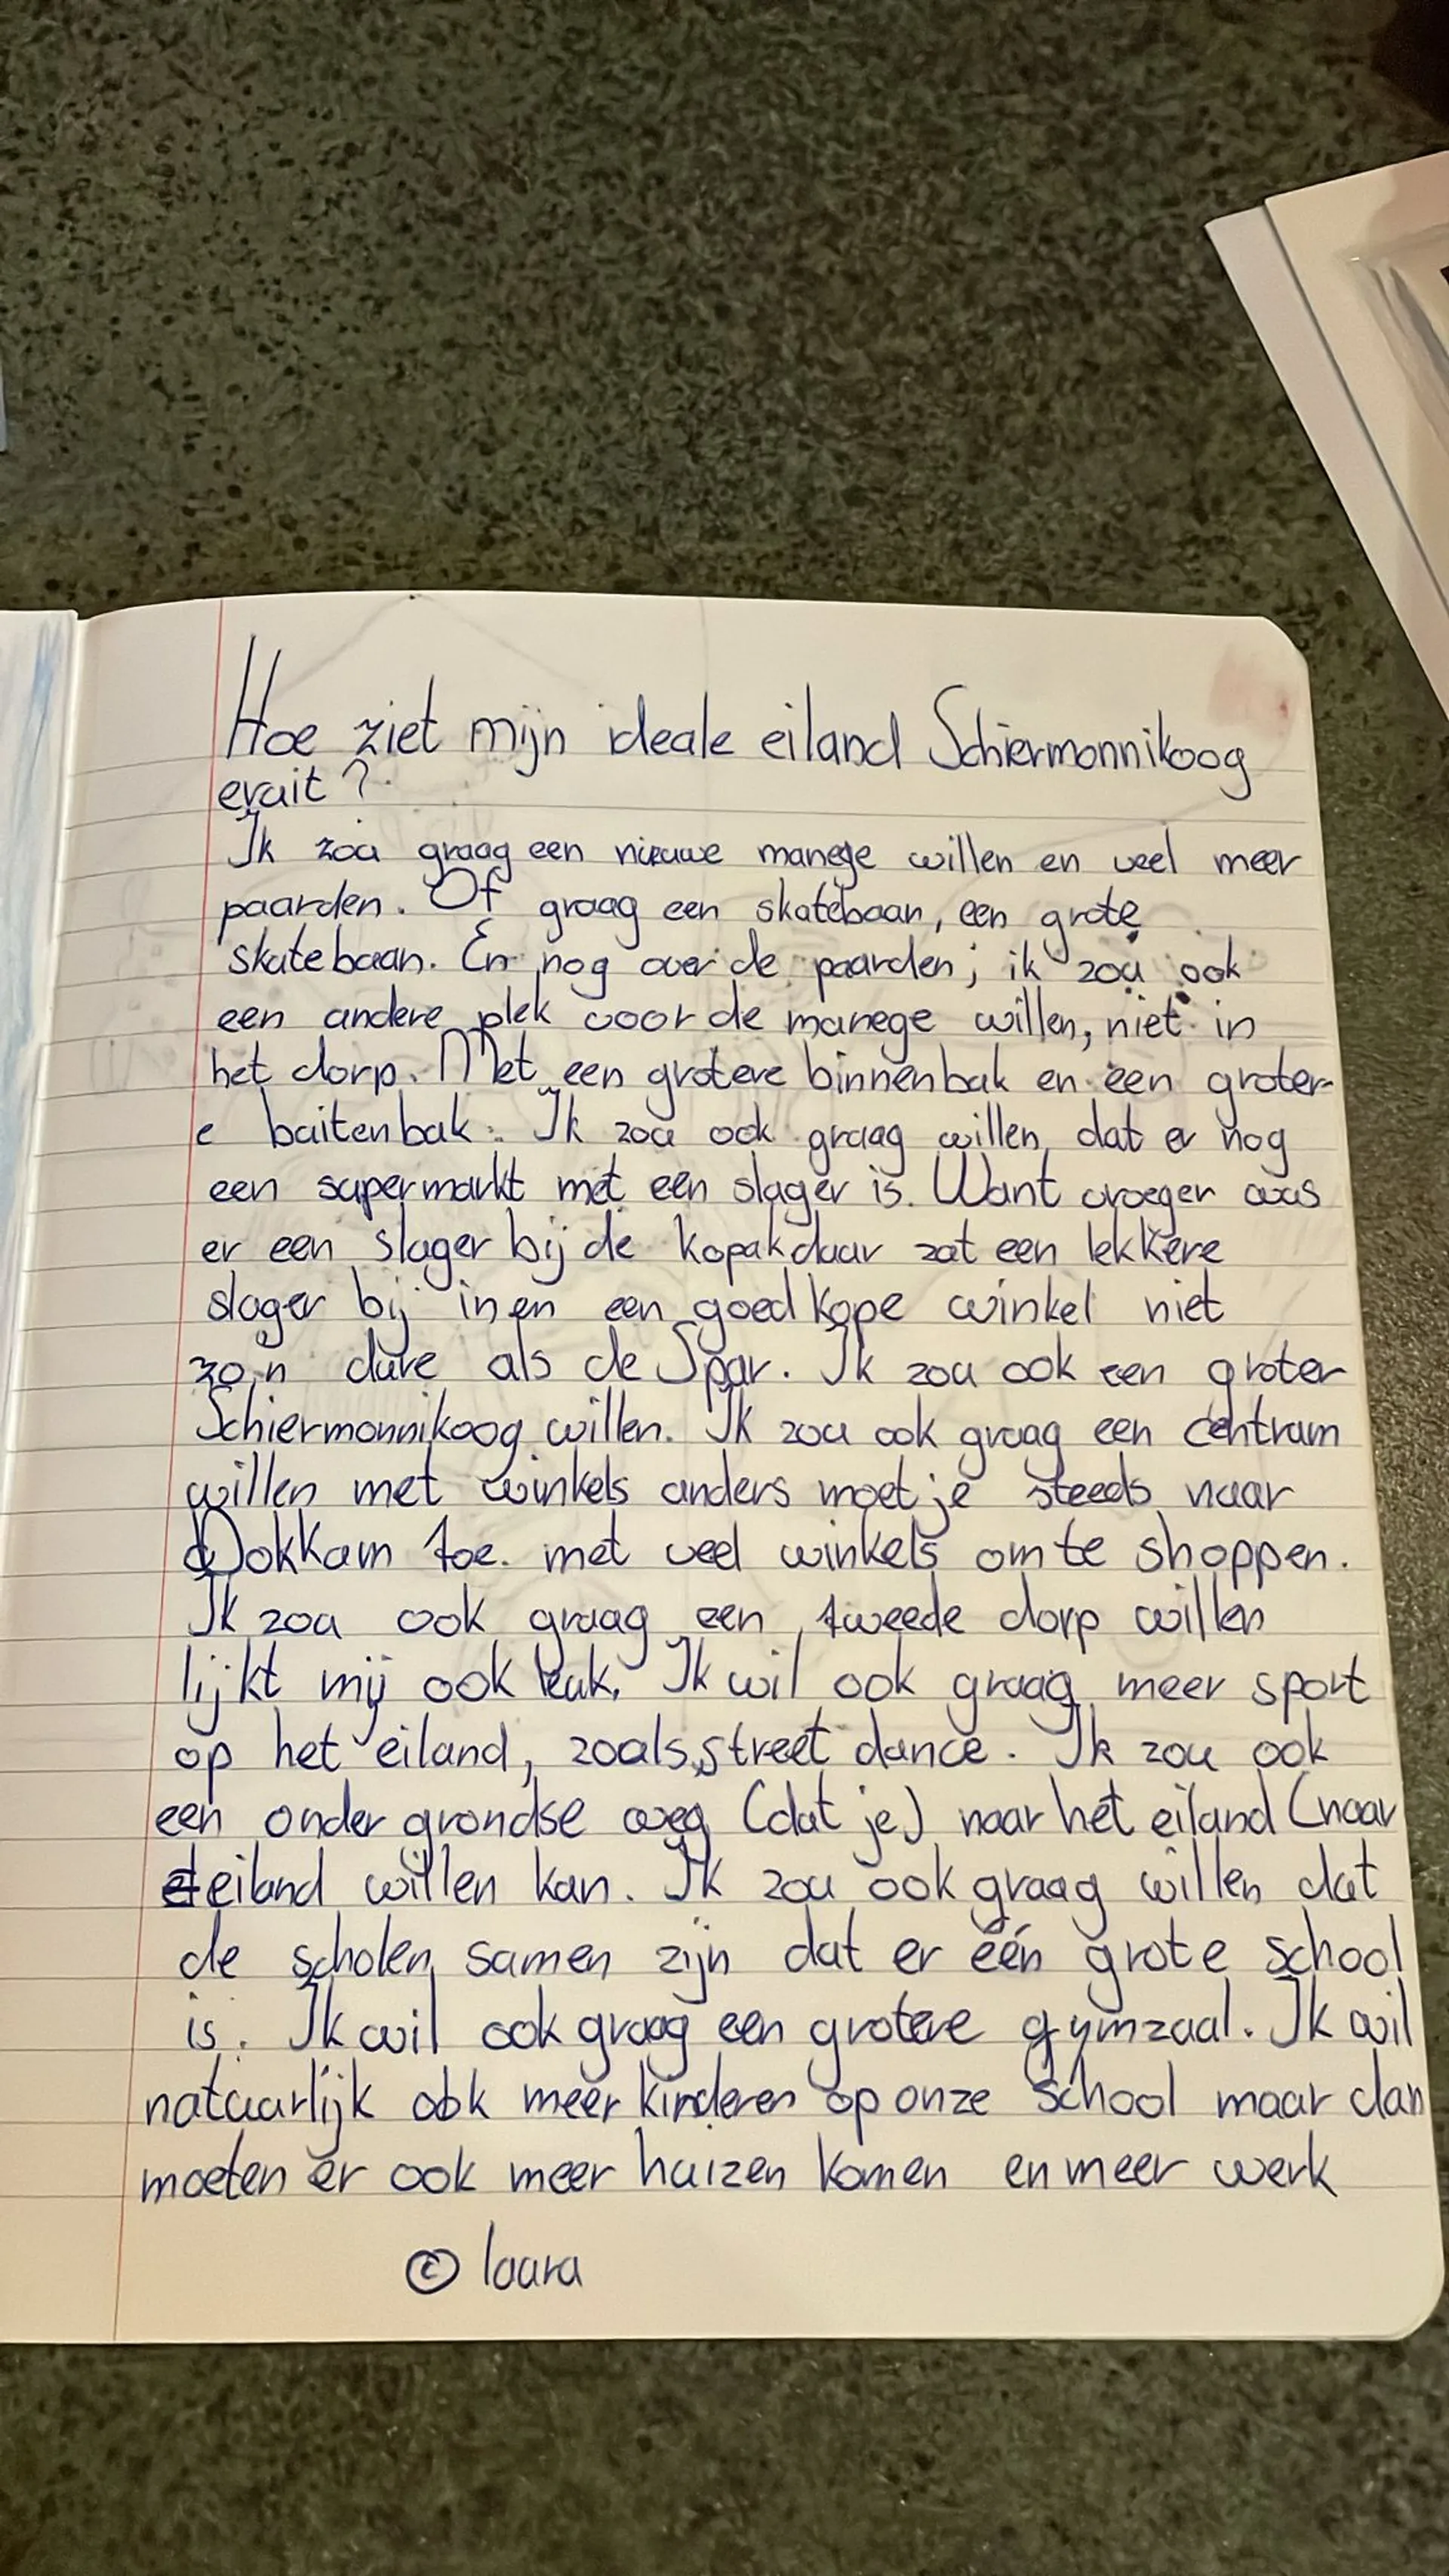 Hoe ziet mijn ideale eiland Schiermonnikoog
eruit?
Ik zou graag een nieuwe manege willen en veel meer
paarden. Of graag een skatebaan, een grote
skatebaan. En nog over de paarden; ik zou ook
een andere plek voor de manege willen, niet in
het dorp. Met een grotere binnenbak en een groter-
e buitenbak. Ik zou ook graag willen dat er nog
een supermarkt met een slager is. Want vroeger was
er een slager bij de kopak daar zat een lekkere
slager bij in en een goedkope winkel niet
zo,n dure als de Spar. Ik zou ook een groter
Schiermonnikoog willen. Ik zou ook graag een centrum
willen met winkels anders moet je steeds naar
Dokkum toe. met veel winkels om te shoppen.
Ik zou ook graag een tweede dorp willen
lijkt mij ook leuk. Ik wil ook graag meer sport
op het eiland, zoals street dance. Ik zou ook
een onder grondse weg (dat je) naar het eiland (naar
eiland willen kan. Ik zou ook graag willen dat
de scholen samen zijn dat er één grote school
is. Ik wil ook graag een grotere gymzaal. Ik wil
natuurlijk ook meer kinderen op onze school maar dan
moeten er ook meer huizen komen en meer werk
© laura